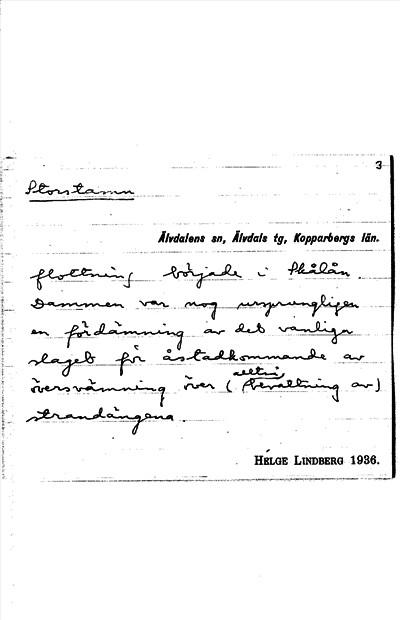 3
Storstamm
Älvdalens sn, Älvdals tg, Kopparbergs län.
flottning började i Skålån.
Dammen var nog ursprungligen
en fördämning av det vanliga
slaget för åstadkommande av
alltså
översvämning över (bevattning av)
strandängena.
HELGE LINDBERG 1936.